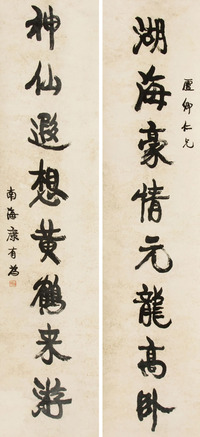 盧卿仁兄
湖海豪情元龍高卧
神仙遐想黄鶴来游
南海康有為